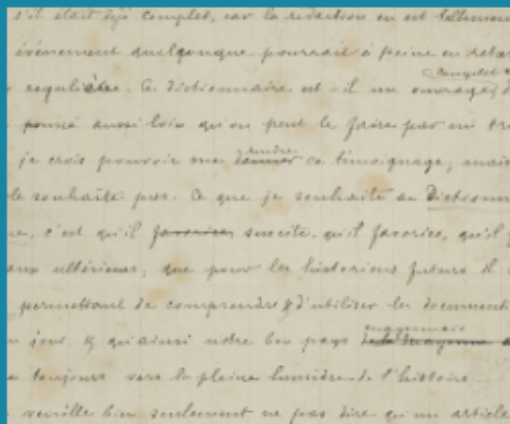 s'il était déjà complet, car la rédaction en est tellement
événement quelconque pourrait à peine en retar
régulière. Ce dictionnaire est-il un ouvrage, complet
poussé aussi loin qu'on peut le faire par un tra
je crois pouvoir me donner rendre ce témoignage, mais
le souhaite pas. Ce que je souhaite au Dictionn
c'est qu'il favorise, suscite, qu'il favorise, qu'il
aux ultérieurs, que pour les historiens futurs il
permettant de comprendre & d'utiliser les document
jour, & qu'ainsi notre beau pays de la Mayenne mayennais
toujours vers la pleine lumière de l'histoire
veuille bien seulement ne pas dire qu'un article